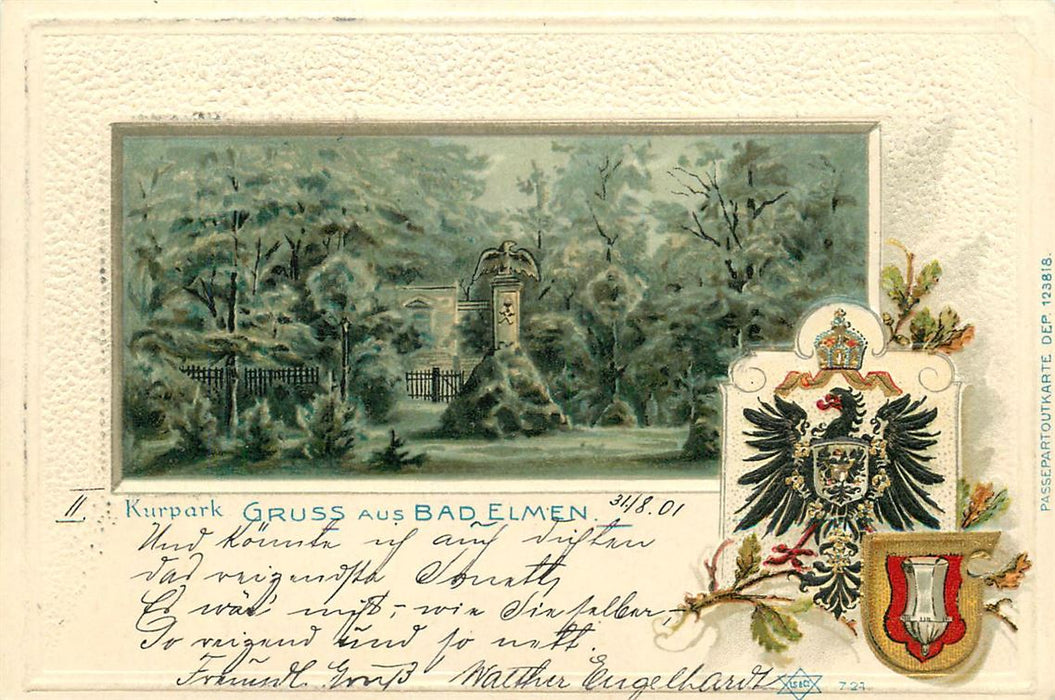 II.
Kurpark GRUSS AUS BAD ELMEN. 31/8.01
Und könnte ich auch dichten
das reizendste Sonett,
Es wär' nicht, – wie Sie selber, –
So reizend und so nett.
Freundl. Gruß Walther Engelhardt
7.27.
PASSEPARTOUTKARTE DEP. 123818.